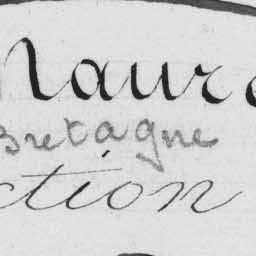 Maure
Bretagne
ction